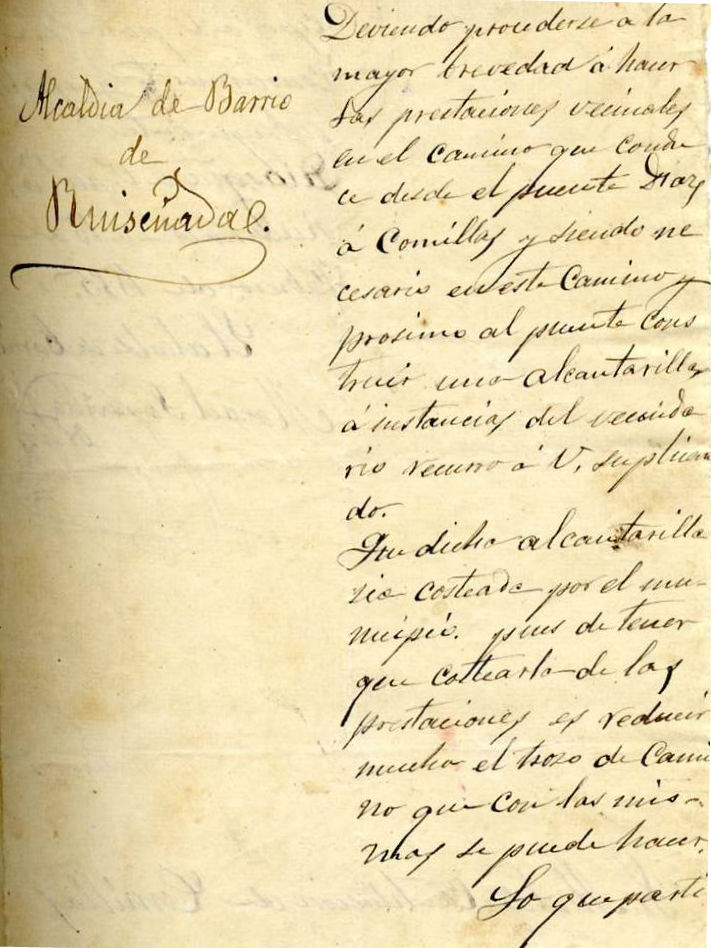 Alcaldia de Barrio
de
Ruiseñada.
Deviendo procederse a la
mayor brevedad á hacer
las prestaciones vecinales
en el camino que condu
ce desde el puente Diaz
á Comillas y siendo ne
cesario en este Camino y
prosimo al puente cons
truir una alcantarilla,
á instancias del vecinda
rio recurro á V. suplican
do.
Que dicha alcantarilla
sea costeada por el mu-
nicipio. pues de tener
que costearla de las
prestaciones es reducir
mucho el trozo de Cami
no que con las mis-
mas se puede hacer.
Lo que parti